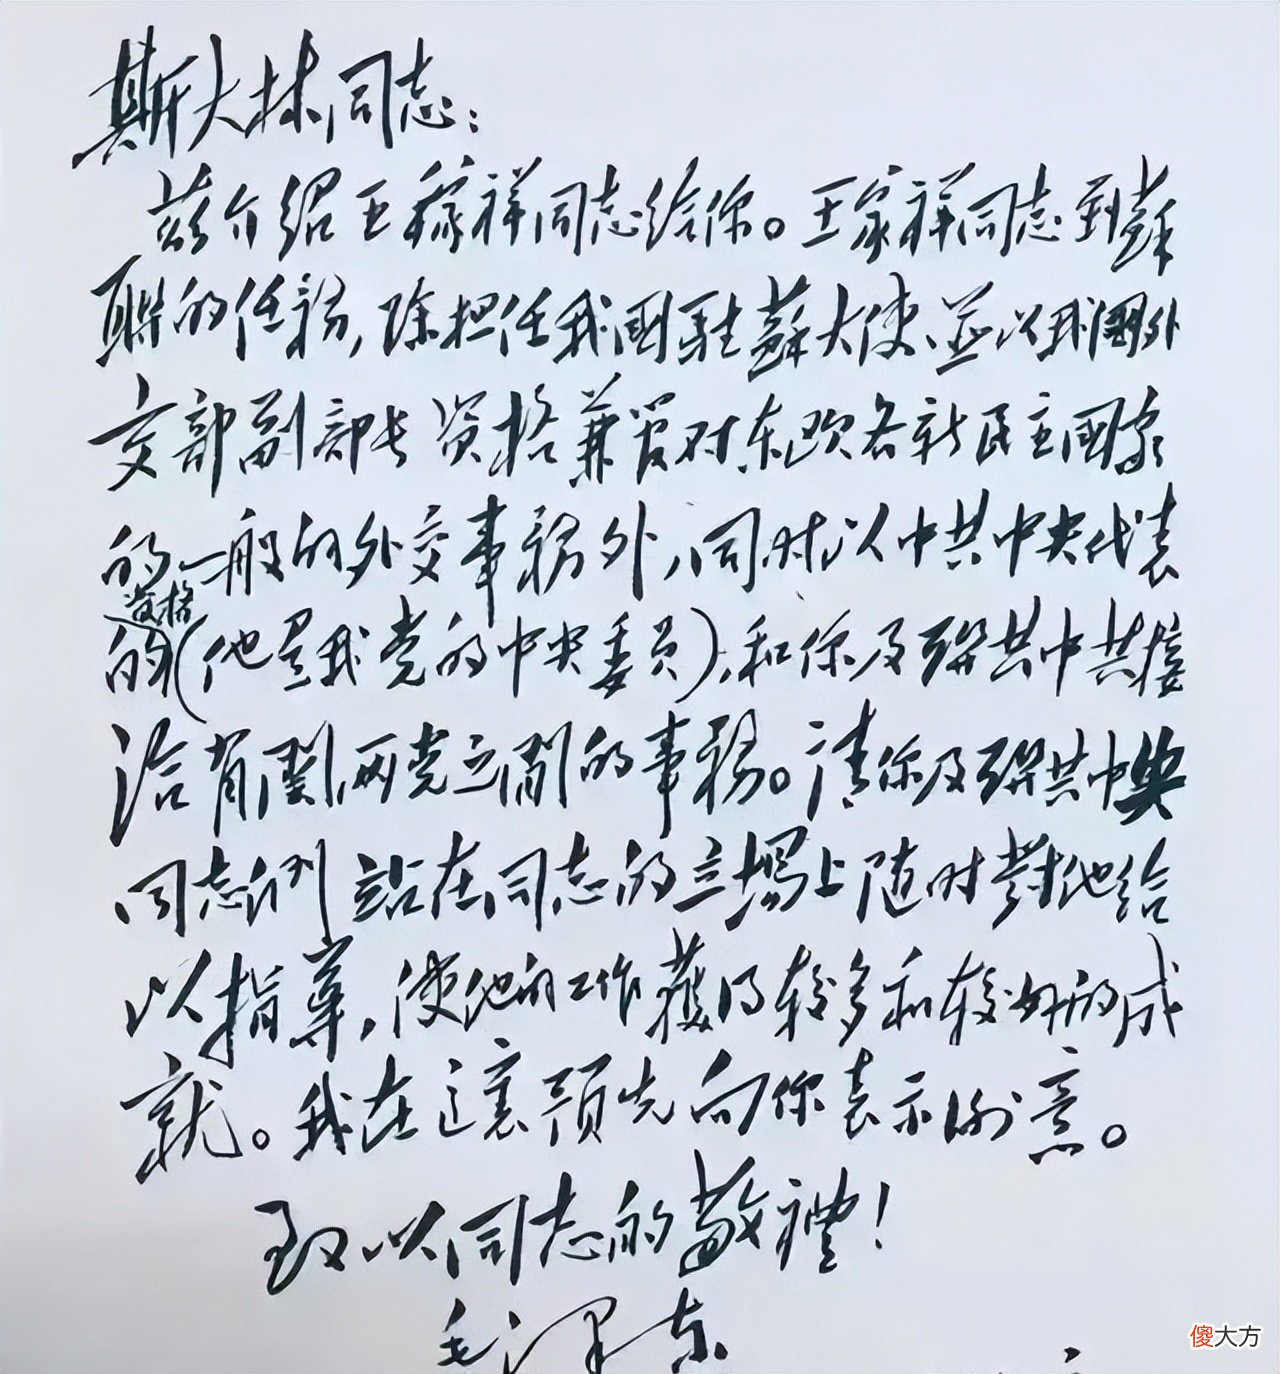 斯大林同志：
兹介绍王稼祥同志给你。王家祥同志到蘇
联的任務，除担任我國駐蘇大使、並以我國外
交部副部长資格兼管对东欧各新民主國家
的一般的外交事務外，同时以中共中央代表
資格
的（他是我党的中央委員），和你及联共中共接
洽有関两党之間的事務。請你及联共中央
同志们站在同志的立場上随时對他给
以指導，使他的工作獲得较多和较好的成
就。我在這裏預先向你表示谢意。
致以同志的敬禮！
毛泽东
傻大方